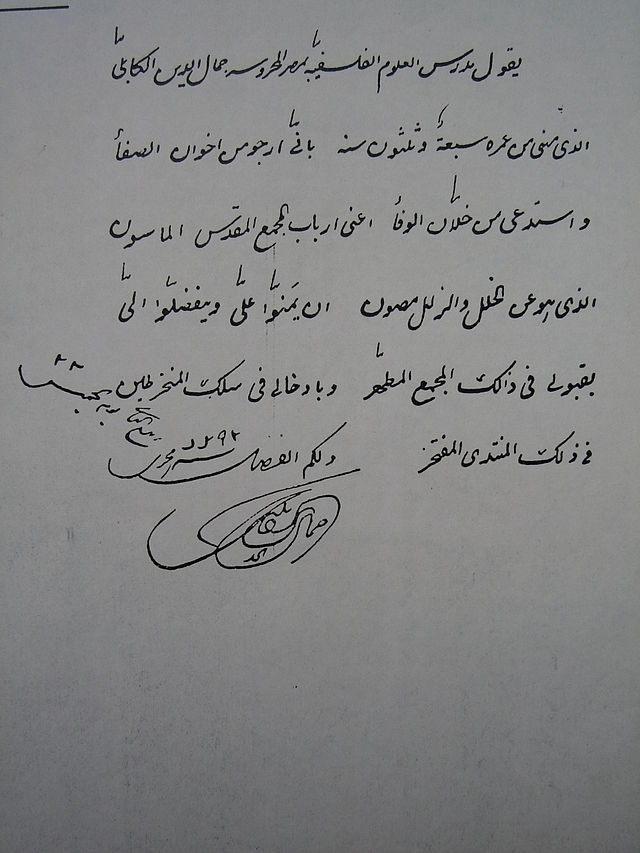 يقول مدرس العلوم الفلسفية بمصر المحروسه جمال الدين الكابلي
الذى مضى من عمره سبعة وثلثون سنه بانى ارجو من اخوان الصفا
واستدعى من خلان الوفا اعنى ارباب المجمع المقدس الماسون
الذى هو عن الخلل والزلل مصون ان يمنوا على ويتفضلوا الى
بقبولى فى ذالك المجمع المطهر وبادخالى فى سلك المنخرطين
فى ذلك المنتدى المفتخر ولكم الفضل
جمال الدين